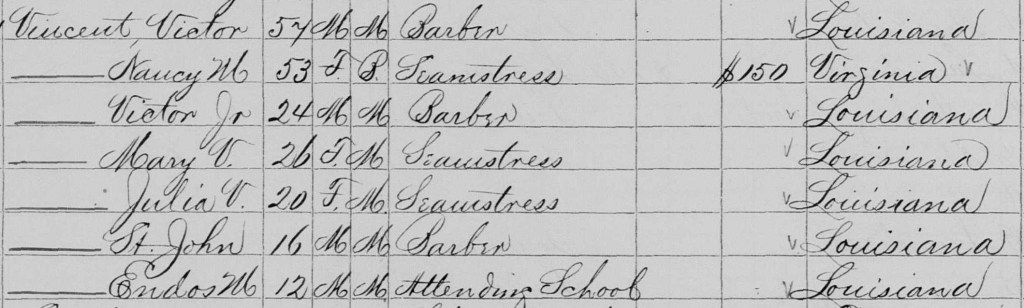 Vincent, Victor 57 M M Barber Louisiana
Nancy M 53 F. B. Seamstress $150 Virginia
Victor Jr 24 M M Barber Louisiana
Mary V. 26 F. M Seamstress Louisiana
Julia V. 20 F. M. Seamstress Louisiana
St. John 16 M M Barber Louisiana
Endos M 12 M M Attending School Louisiana